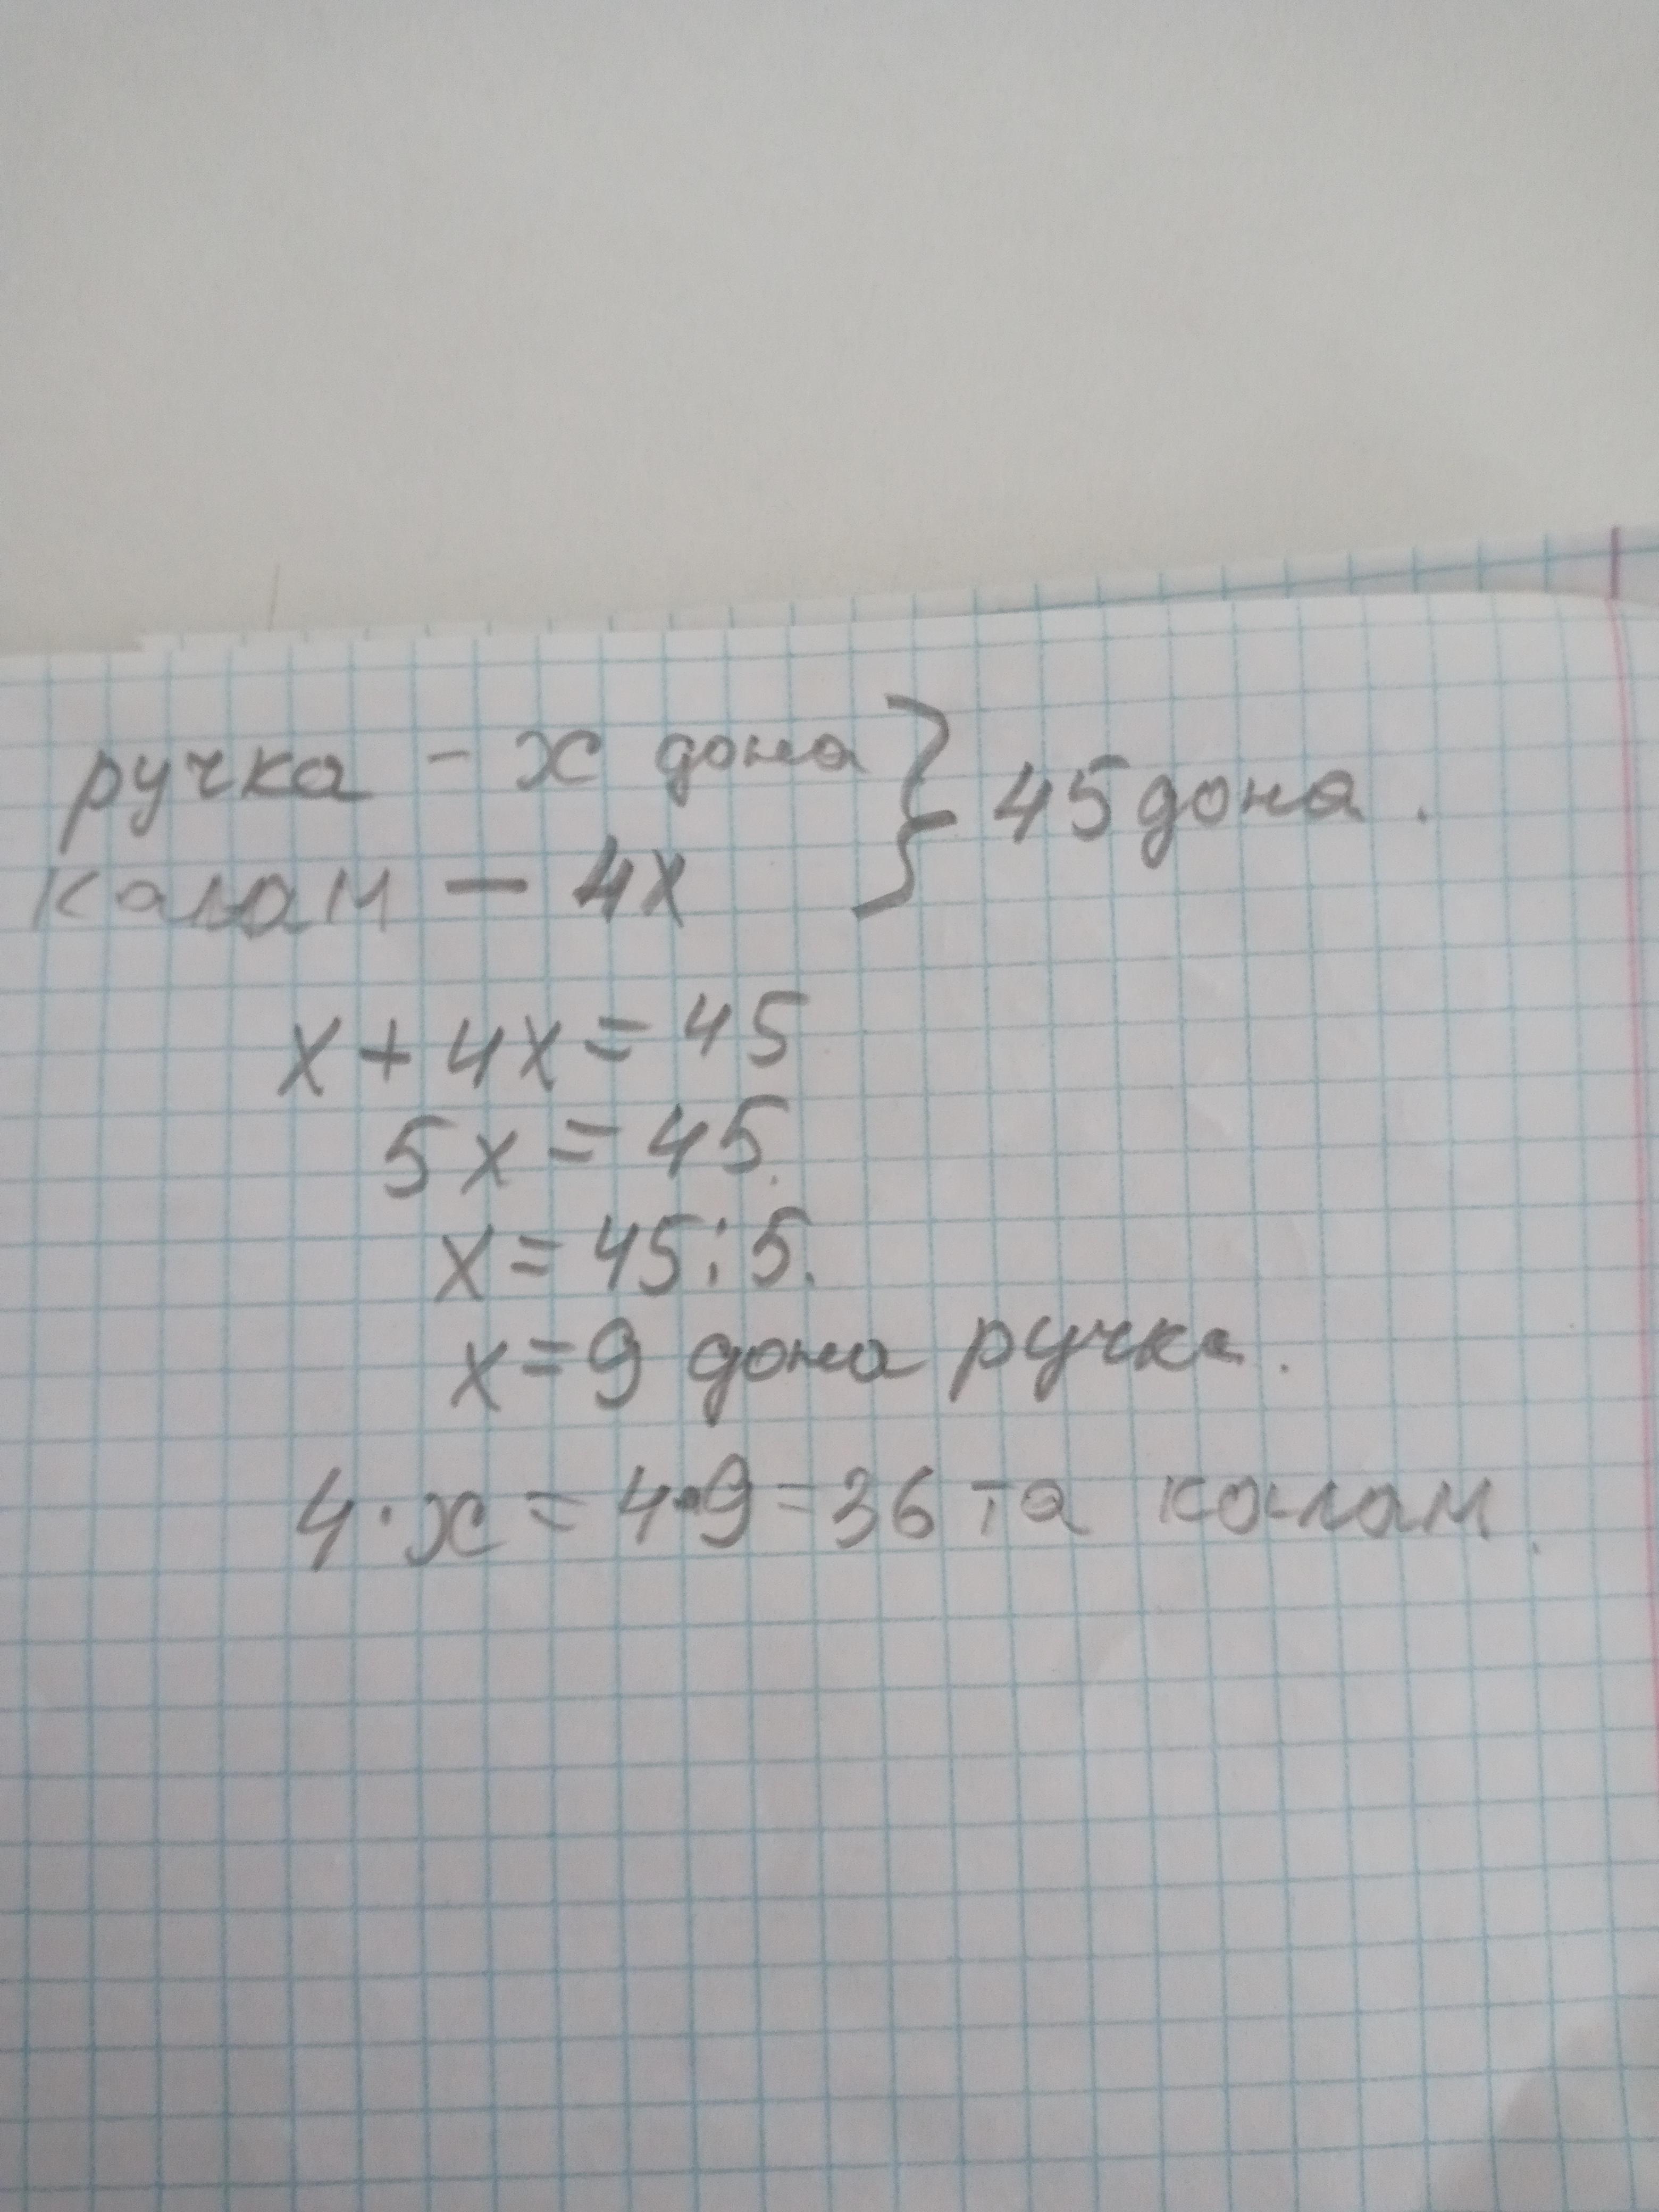 ручка - x дона } 45 дона.
калам - 4x
x + 4x = 45
5x = 45.
x = 45:5.
x = 9 дона ручка.
4·x = 4·9 = 36 та калам.